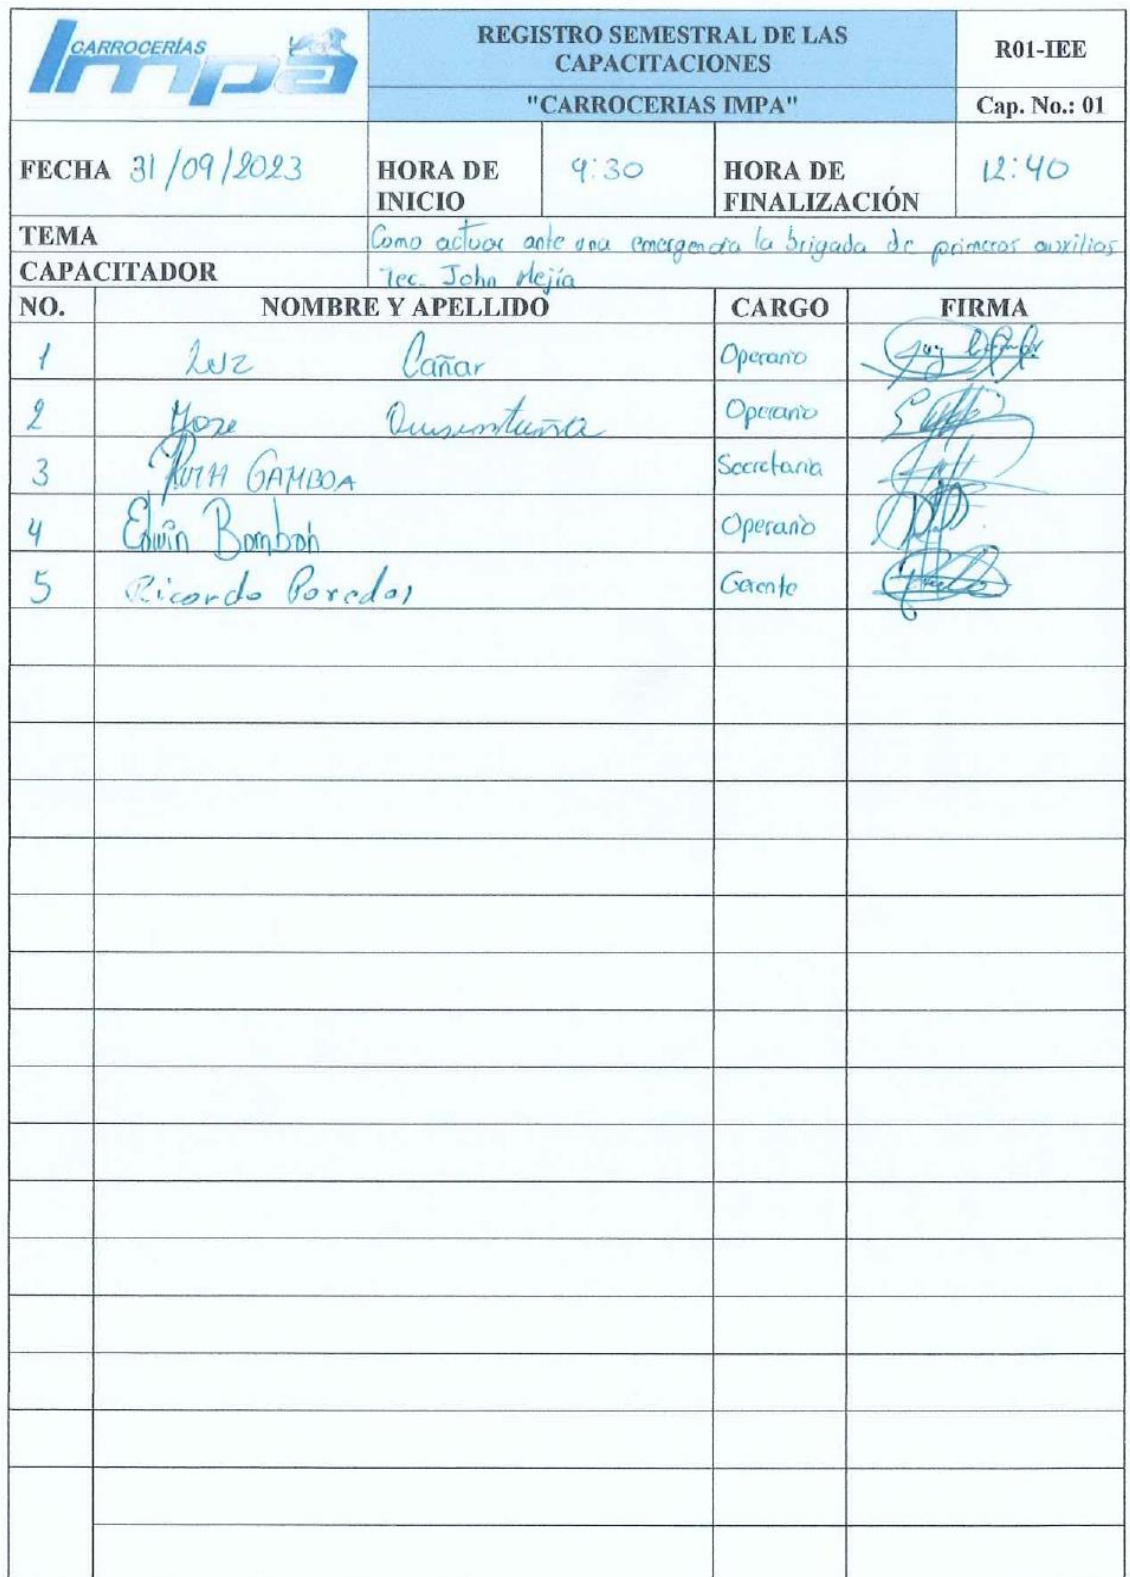 CARROCERÍAS
Impa
REGISTRO SEMESTRAL DE LAS
CAPACITACIONES
R01-IEE
"CARROCERIAS IMPA"
Cap. No.: 01
FECHA 31/09/2023
HORA DE
INICIO
9:30
HORA DE
FINALIZACIÓN
12:40
TEMA Como actuar ante una emergencia la brigada de primeros auxilios
CAPACITADOR Tec. John Mejía
NO. NOMBRE Y APELLIDO CARGO FIRMA
1 Luz Cañar Operario
2 Jose Operario
3 RUTH GAMBOA Secretaria
4 Edwin Operario
5 Ricardo Paredes Gerente